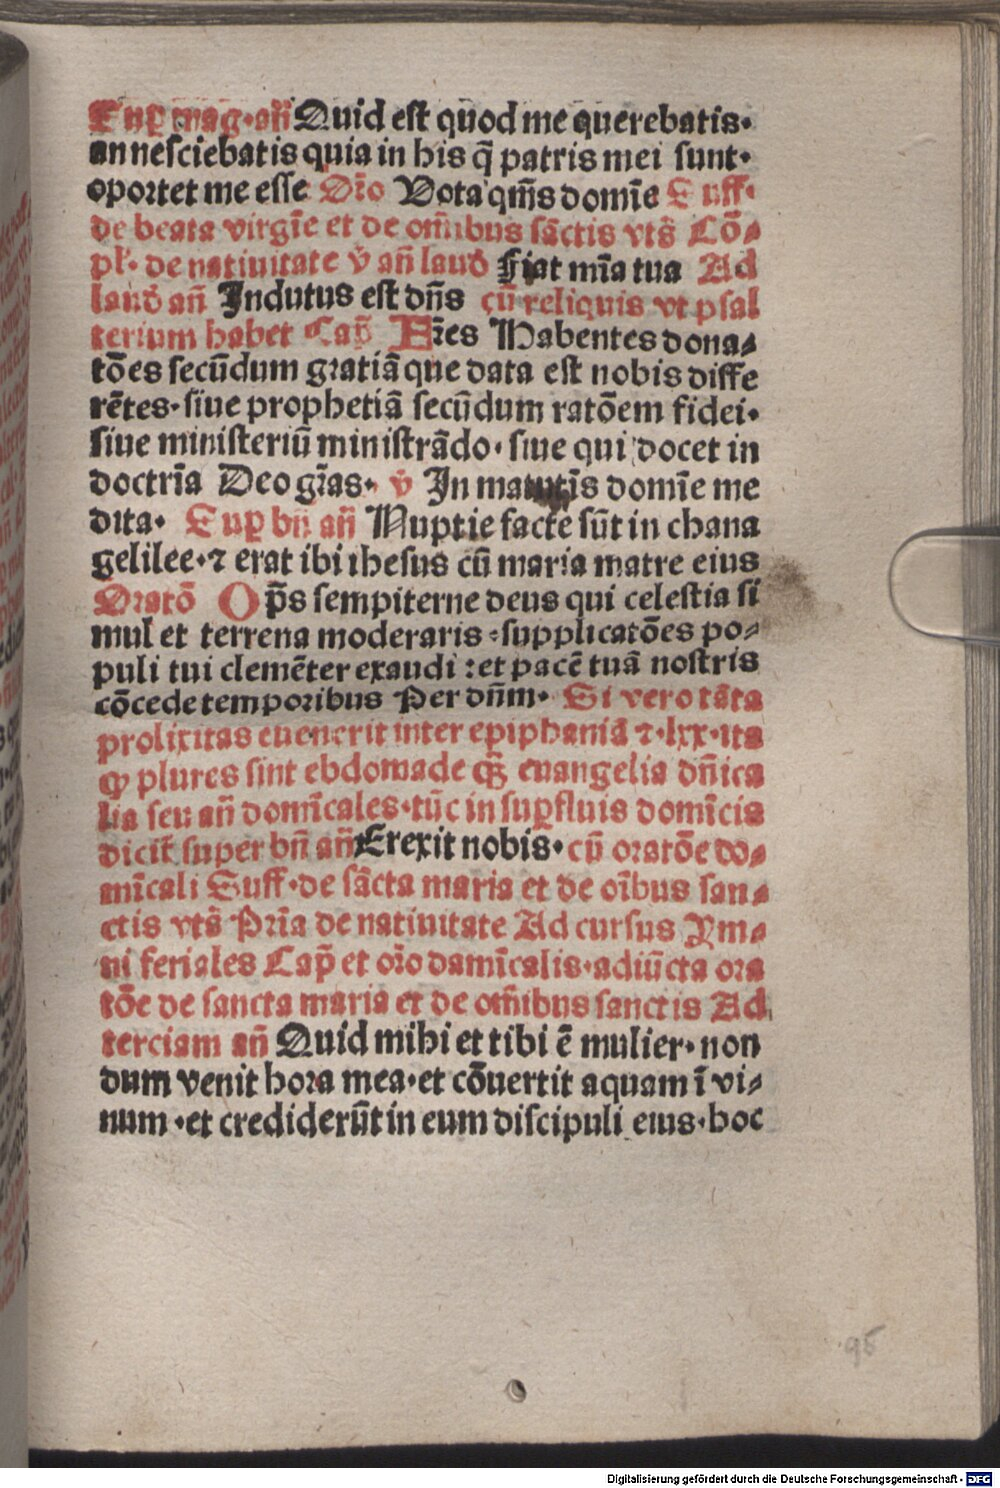 Sup mag· añ Quid est quod me querebatis·
an nesciebatis quia in his q̄ patris mei sunt·
oportet me esse Or̄o Vota qm̄s domīe Suff·
de beata virgīe et de om̄ibus sāctis vts̄ Cō⸗
pl'· de natiuitate v̄ añ laud̄ Fiat mīa tua Ad
laud̄ añ Indutus est dn̄s cū reliquis vt psal
terium habet Cap̄ Fr̄es Habentes dona⸗
tōes secūdum gratiā que data est nobis diffe
rētes· siue prophetiā secūdum ratōem fidei·
siue ministeriū ministrādo· siue qui docet in
doctrīa Deo gr̄as· v̄ In matutīs domīe me
dita· Sup bn̄ añ Nuptie facte sūt in chana
gelilee· ⁊ erat ibi ihesus cū maria matre eius
Oratō Op̄s sempiterne deus qui celestia si
mul et terrena moderaris : supplicatōes po⸗
puli tui clemēter exaudi : et pacē tuā nostris
cōcede temporibus Per dn̄m· Si vero tāta
prolixitas euenerit inter epiphaniā ⁊· lxx· ita
ꝙ plures sint ebdomade qꝫ euangelia dn̄ica
lia seu añ domīcales· tūc in supfluis domīcis
dicit̄ super bn̄ añ Erexit nobis· cū oratōe do⸗
mīcali Suff· de sācta maria et de oībus san⸗
ctis vts̄ Prīa de natiuitate Ad cursus Ym⸗
ni feriales Cap̄ et or̄o damīcalis· adiūcta ora
tōe de sancta maria et de om̄ibus sanctis Ad
terciam añ Quid mihi et tibi ē mulier· non
dum venit hora mea· et cōuertit aquam ī vi⸗
num · et crediderūt in eum discipuli eius· hoc
95
Digitalisierung gefördert durch die Deutsche Forschungsgemeinschaft - DFG